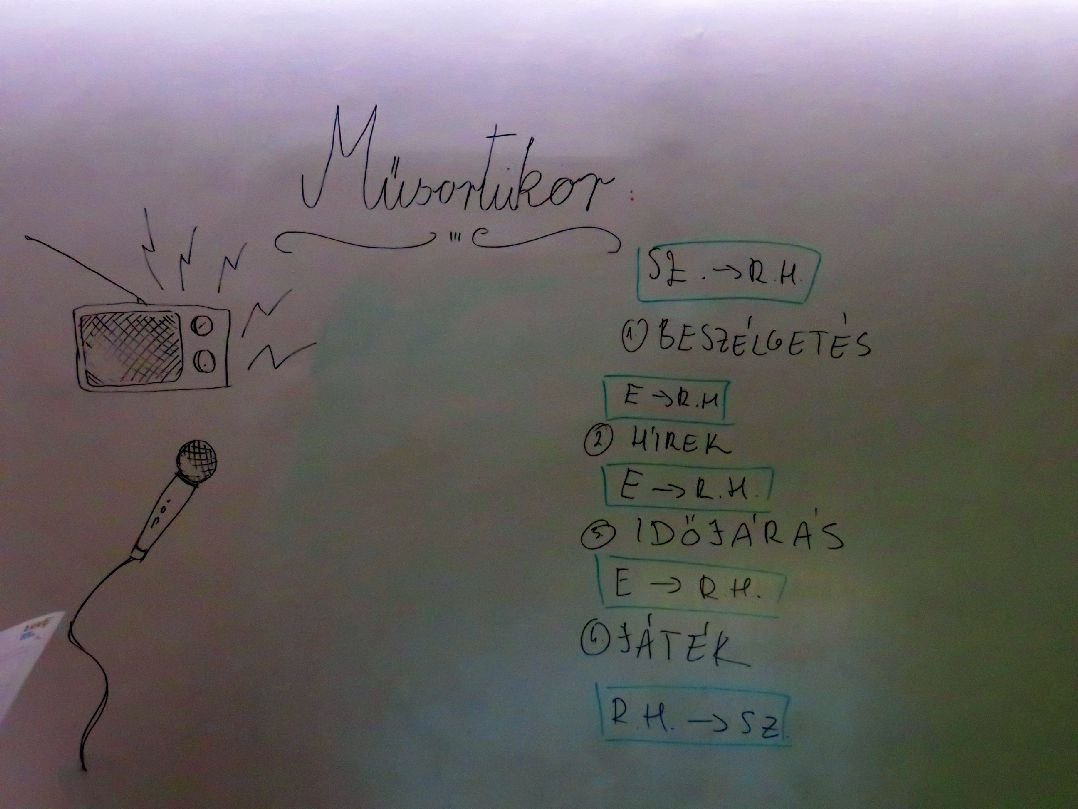 Műsortükör:
SZ. → R.H.
① BESZÉLGETÉS
E → R.H
② HÍREK
E → R.H.
③ IDŐJÁRÁS
E → R H.
④ JÁTÉK
R.H. → SZ.